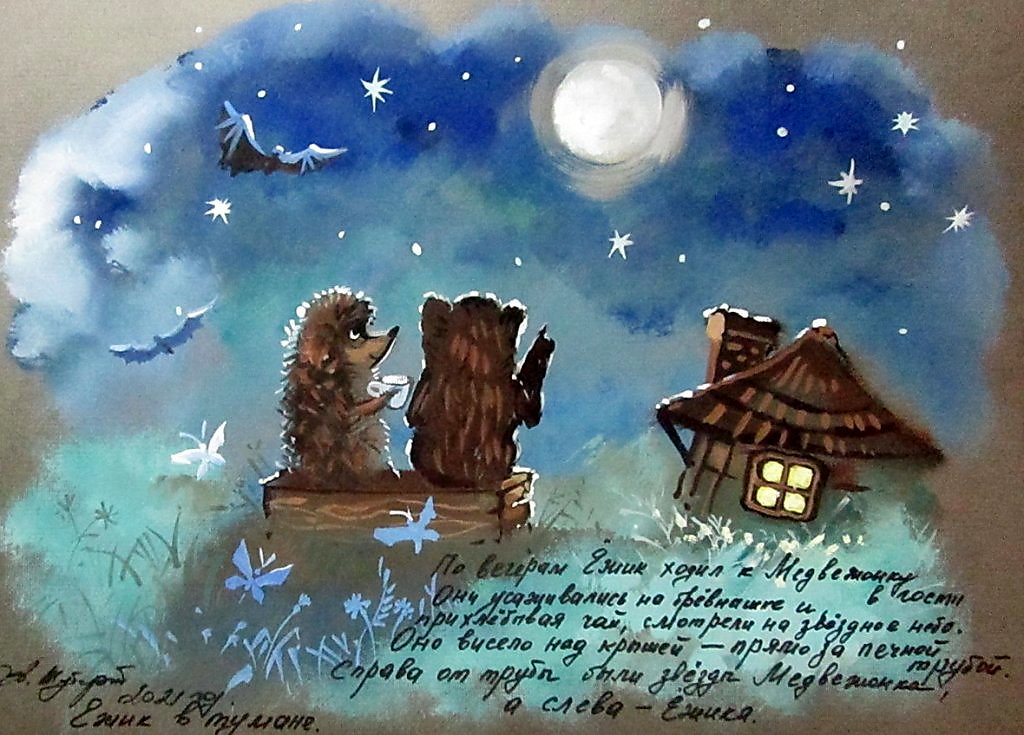 По вечерам Ёжик ходил к Медвежонку
в гости
Они усаживались на брёвнашке и
прихлёбывая чай, смотрели на звёздное небо.
Оно висело над крышей — прямо за печной
трубой.
Справа от трубы были звёзды Медвежонка,
а слева — Ёжика.
2021 год.
Ёжик в тумане.